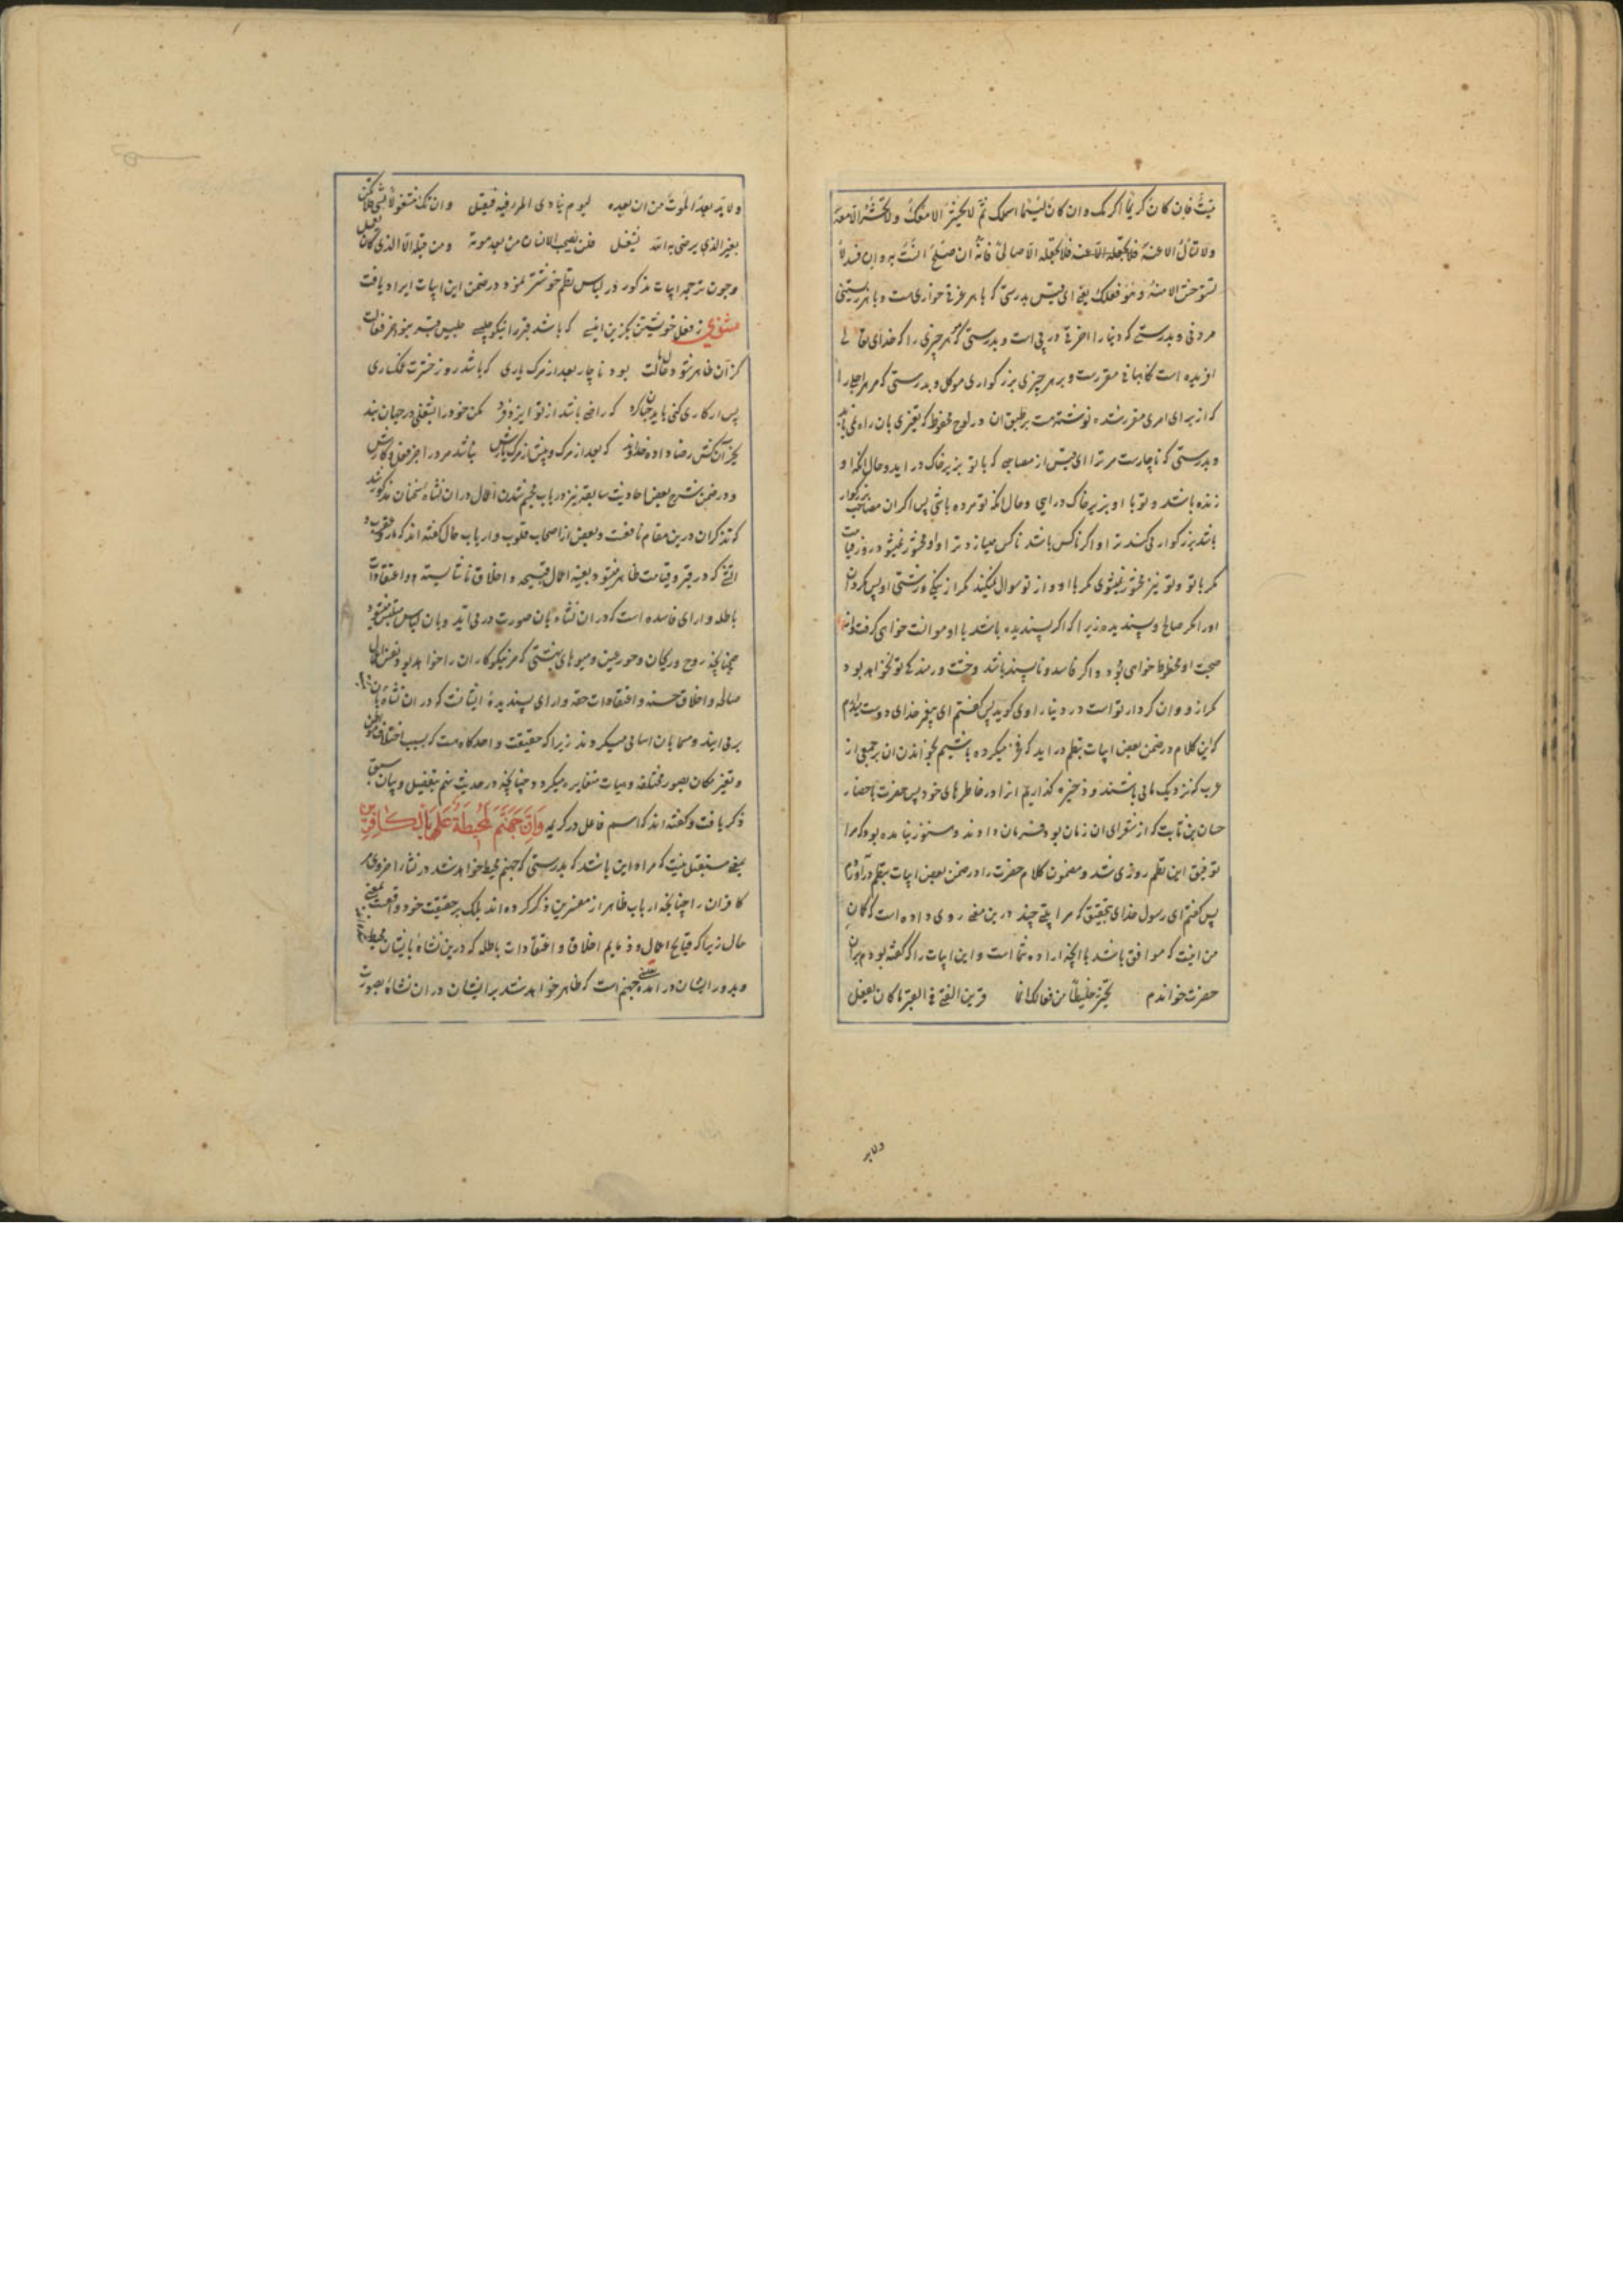 میّتٌ فان کان کریما اکرمک وان کان لئیما اسلمک ثم لا یحشر الا معک ولا تحشر الا معه
ولا تسأل الا عنه فلا تجعله الا صالحا فانه ان صلح انست به وان فسد لا
تستوحش الا منه وهو فعلک یعنی ای قیس بدرستی که با هر عزتی خواری است و با هر زیستنی
مردنی و بدرستی که دنیا را اخرتی در پی است و بدرستی که هر چیزی را که خدای تعالی
افریده است نکاهبانی مقررست و بر هر چیزی بزرکواری موکل و بدرستی که مر هر اجلی را
که از برای امری مقرر شده نوشته هست بر طبق ان در لوح محفوظ که تغیری بان راه نمی یابد
و بدرستی که ناچارست مر ترا ای قیس از مصاحبی که با تو بزیر خاک در اید و حال انکه او
زنده باشد و تو با او بزیر خاک در ایی و حال انکه تو مرده باشی پس اکر ان مصاحب بزرکوار
باشد بزرکوار می کند ترا و اکر ناکس باشد ناکس میسازد ترا و او محشور نمیشود در روز قیامت
مکر با تو و تو نیز محشور نمیشوی مکر با او و از تو سوال نمیکنند مکر از نیکی و زشتی او پس مکردان
او را مکر صالح و پسندیده زیرا که اکر پسندیده باشد با او موانست خواهی کرفت و از
صحبت او محظوظ خواهی بود و اکر فاسد و ناپسند باشد وحشت و رمندکی تو نخواهد بود
مکر از و و ان کردار تو است در دنیا راوی کوید پس کفتم ای پیغمبر خدای دوست میدارم
که این کلام در ضمن بعض ابیات بنظم در اید که فخر میکرده باشیم بخواندن ان بر جمعی از
عرب که نزدیک ما می باشند و ذخیره کذاریم انرا در خاطرهای خود پس حضرت باحضار
حسان بن ثابت که از شعرای ان زمان بود فرمان دادند و هنوز نیامده بود که مرا
توفیق این نظم روزی شد و مضمون کلام حضرت را در ضمن بعض ابیات بنظم در آوردم
پس کفتم ای رسول خدای بتحقیق که مرا بیتی چند درین معنی روی داده است که کمان
من اینست که موافق باشد با انچه اراده شما است و این ابیات را که کفته بودم بران
حضرت خواندم تخیر خلیطا من فعالک انما قرین الفتی فی القبر ما کان یفعل
ولا بد
ولا بد بعد الموت من ان تعده لیوم ینادی المرء فیه فیقبل وان تک مشغولا بشی فلا تکن
بغیر الذی یرضی به الله تشغل فلن یصحب الانسان من بعد موته ومن قبله الا الذی کان یعمل
و چون ترجمه ابیات مذکور در لباس نظم خوشتر نمود در ضمن این ابیات ایراد یافت
مثنوی ز فعل خویشتن بکزین انیسی که باشد قبر را نیکو جلیسی جلیس قبر نبود جز فعالت
کز آن ظاهر شود حالت بود ناچار بعد از مرک یاری که باشد روز حشرت غمکساری
پس ار کاری کنی باید چنان کرد که راضی باشد از تو ایزد فرد مکن خود را بشغلی در جهان بند
بجز آن کش رضا داده خداوند که بعد از مرک و پیش از مرک یارش نباشد مرد را جز فعل و کارش
و در ضمن شرح بعض احادیث سابقه نیز در باب مجسم شدن اعمال در ان نشاه سخنان مذکور شد
که تذکر ان درین مقام نافعست و بعض از اصحاب قلوب و ارباب حال کفته اند که مار و عقرب و
اتشی که در قبر و قیامت ظاهر میشود بعینه اعمال قبیحه و اخلاق ناشایسته و اعتقادات
باطله و ارای فاسده است که در ان نشاه بان صورت در می آید و بان لباس متلبس میشود
همچنانچه روح و ریحان و حور عین و میوهای بهشتی که مر نیکوکاران را خواهد بود بعینه اعمال
صالحه و اخلاق حسنه و اعتقادات حقه و ارای پسندیدهٔ ایشانست که در ان نشاه بان
بر می ایند و مسما بان اسامی میکردند زیرا که حقیقت واحد کاه هست که بسبب اختلاف موطن
و تغیر مکان بصور مختلفه و هیات متغایره میکردد چنانچه در حدیث نهم بتفصیل و بیان سبق
ذکر یافت و کفته اند که اسم فاعل در کریمه وَاِنَّ جَهَنَّمَ لَمُحِیطَةٌ بِالْکافِرِینَ
بمعنی مستقبل نیست که مراد این باشد که بدرستی که جهنم محیط خواهد شد در نشاء اخروی
کافران را چنانچه ارباب ظاهر از مفسرین ذکر کرده اند بلکه بر حقیقت خود واقعست بمعنی
حال زیرا که قبایح اعمال و ذمایم اخلاق و اعتقادات باطله که درین نشاه بایشان محیط
و بدور ایشان در آمده بعینه جهنم است که ظاهر خواهد شد بر ایشان در ان نشاه بصورت